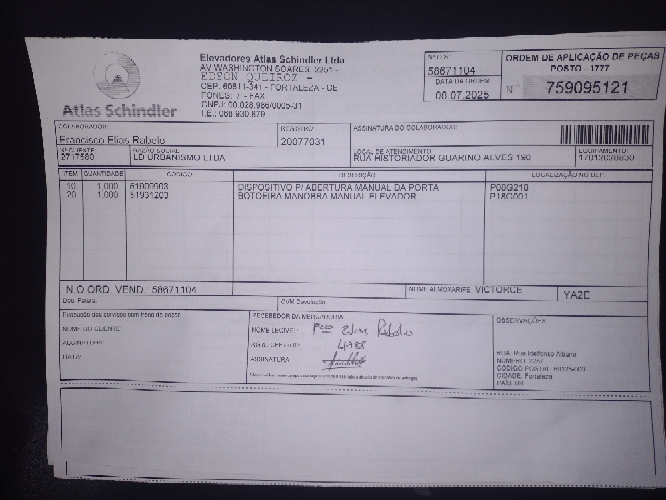 Elevadores Atlas Schindler Ltda
AV WASHINGTON SOARES,
EDSON QUEIROZ -
CEP: 60811-341 - FORTALEZA - CE
FONES: / - FAX
CNPJ: 00.028.986/0005-31
I.E.: 068.830.879
Atlas Schindler
58671104
DATA DA ORDEM
08.07.2025
ORDEM DE APLICAÇÃO DE PEÇAS
POSTO - 1777
N° 759095121
COLABORADOR:
Francisco Elias Rabelo
REGISTRO
20077031
ASSINATURA DO COLABORADOR:
Nº CLIENTE
2717580
RAZÃO SOCIAL
LD URBANISMO LTDA
LOCAL DE ATENDIMENTO
RUA HISTORIADOR GUARINO ALVES 190
EQUIPAMENTO:
ITEM QUANTIDADE CÓDIGO DESCRIÇÃO LOCALIZAÇÃO NO DEP.
10 1,000 DISPOSITIVO P/ ABERTURA MANUAL DA PORTA P08G218
20 1,000 51931203 BOTOEIRA MANOBRA MANUAL ELEVADOR P18G001
N.O ORD. VEND.: 58671104
NOME ALMOXARIFE: VICTORCE
YA2E
Doc. Fatura:
GVM Devolução:
Execução dos serviços com troca de peças
NOME DO CLIENTE:
ASSINATURA:
DATA:
RECEBEDOR DA MERCADORIA
NOME LEGÍVEL: Fco Elias Rabelo
ASSINATURA:
OBSERVAÇÕES
RUA: Rua Ildefonso Albano
NÚMERO: 2257
CÓDIGO POSTAL: 60125-000
CIDADE: Fortaleza
PAÍS: BR